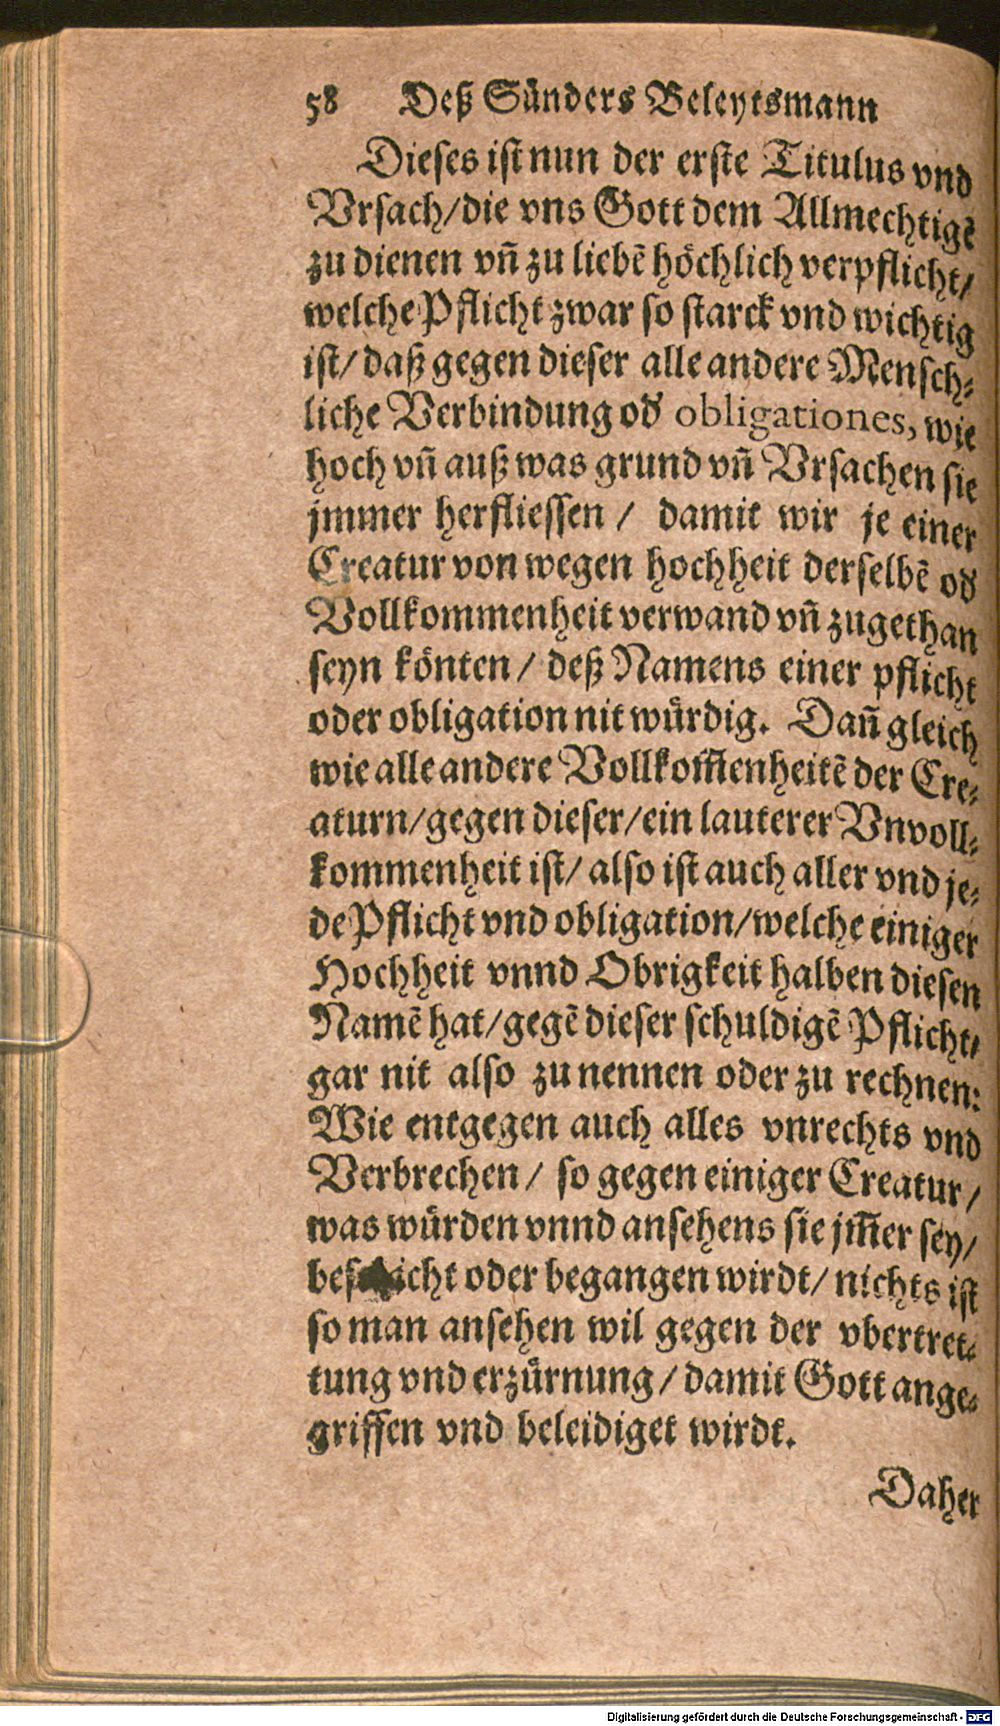 58 Deß Sünders Beleytsmann
Dieses ist nun der erste Titulus vnd
Vrsach/die vns Gott dem Allmechtigē
zu dienen vn̄ zu liebē höchlich verpflicht/
welche Pflicht zwar so starck vnd wichtig
ist/ daß gegen dieser alle andere Mensch⸗
liche Verbindung od' obligationes, wie
hoch vn̄ auß was grund vn̄ Vrsachen sie
jmmer herfliessen / damit wir je einer
Creatur von wegen hochheit derselbē od'
Vollkommenheit verwand vn̄ zugethan
seyn könten / deß Namens einer pflicht
oder obligation nit würdig. Dan̄ gleich
wie alle andere Vollkom̄enheitē der Cre⸗
aturn/gegen dieser/ein lauterer Vnvoll⸗
kommenheit ist/ also ist auch aller vnd je⸗
de Pflicht vnd obligation/welche einiger
Hochheit vnnd Obrigkeit halben diesen
Namē hat/gegē dieser schuldigē Pflicht/
gar nit also zu nennen oder zu rechnen:
Wie entgegen auch alles vnrechts vnd
Verbrechen / so gegen einiger Creatur /
was würden vnnd ansehens sie jm̄er sey/
oder begangen wirdt/ nichts ist
so man ansehen wil gegen der vbertret⸗
tung vnd erzürnung / damit Gott ange⸗
griffen vnd beleidiget wirdt.
Daher
Digitalisierung gefördert durch die Deutsche Forschungsgemeinschaft - DFG